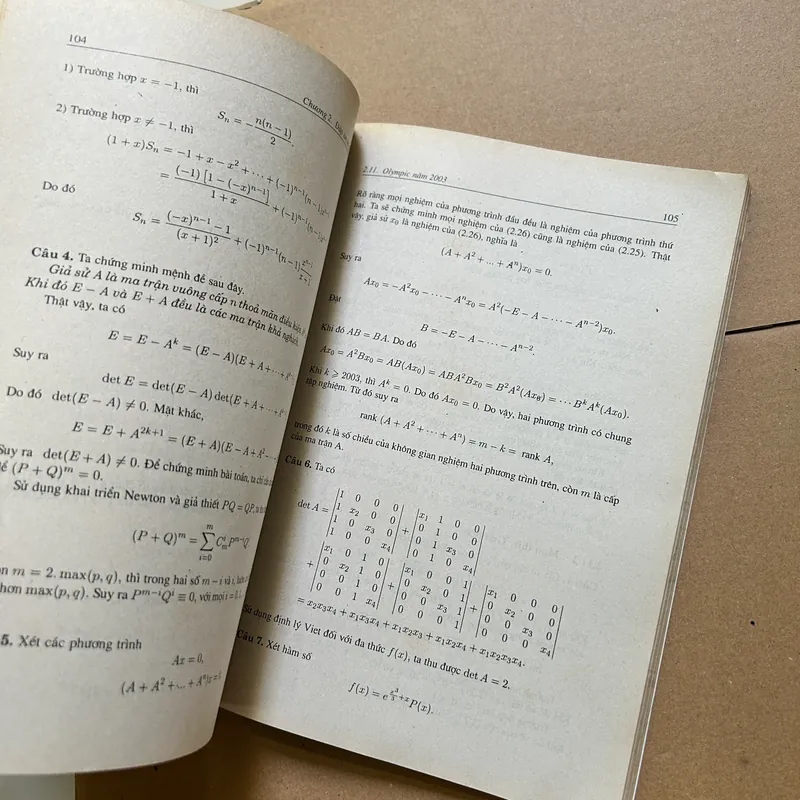 104
Chương 2.
1) Trường hợp x = −1, thì
S_n = −n(n−1)/2.
2) Trường hợp x ≠ −1, thì
(1 + x)S_n = −1 + x − x² + ⋯ + (−1)^{n−1}
= (−1)[1 − (−x)^{n−1}]/(1 + x) + (−1)^{n−1}
Do đó
S_n = ((−x)^{n−1} − 1)/(x + 1)² + (−1)^{n−1}(n−1)
Câu 4. Ta chứng minh mệnh đề sau đây.
Giả sử A là ma trận vuông cấp n thoả mãn điều kiện
Khi đó E − A và E + A đều là các ma trận khả nghịch.
Thật vậy, ta có
E = E − A^k = (E − A)(E + A + ⋯ +
Suy ra
det E = det(E − A) det(E + A + ⋯ +
Do đó det(E − A) ≠ 0. Mặt khác,
E = E + A^{2k+1} = (E + A)(E − A + A²
Suy ra det(E + A) ≠ 0. Để chứng minh bài toán, ta chỉ cần
(P + Q)^m = 0.
Sử dụng khai triển Newton và giả thiết PQ = QP,
(P + Q)^m = ∑_{i=0}^{m} C_m^i P^{m−i}Q
m = 2. max(p, q), thì trong hai số m − i và i,
hơn max(p, q). Suy ra P^{m−i}Q^i ≡ 0, với mọi i = 0,
5. Xét các phương trình
Ax = 0,
(A + A² + ... + A^n)x =
2.11. Olympic năm 2003
105
Rõ ràng mọi nghiệm của phương trình đầu đều là nghiệm của phương trình thứ
hai. Ta sẽ chứng minh mọi nghiệm của (2.26) cũng là nghiệm của (2.25). Thật
vậy, giả sử x₀ là nghiệm của (2.26), nghĩa là
(A + A² + ... + A^n)x₀ = 0.
Suy ra
Ax₀ = −A²x₀ − ⋯ − A^n x₀ = A²(−E − A − ⋯ − A^{n−2})x₀.
Đặt
B = −E − A − ⋯ − A^{n−2}.
Khi đó AB = BA. Do đó
Ax₀ = A²Bx₀ = AB(Ax₀) = ABA²Bx₀ = B²A²(Ax₀) = ⋯ B^kA^k(Ax₀).
Khi k ⩾ 2003, thì A^k = 0. Do đó Ax₀ = 0. Do vậy, hai phương trình có chung
tập nghiệm. Từ đó suy ra
rank (A + A² + ⋯ + A^n) = m − k = rank A,
trong đó k là số chiều của không gian nghiệm hai phương trình trên, còn m là cấp
của ma trận A.
Câu 6. Ta có
1 0 0 0 x₁ 1 0 0
1 x₂ 0 0 0 1 0 0
det A = 1 0 x₃ 0 + 0 1 x₃ 0
1 0 0 x₄ 0 1 0 x₄
x₁ 0 1 0 x₁ 0 0 1 x₁ 0 0 0
+ 0 x₂ 1 0 + 0 x₂ 0 1 + 0 x₂ 0 0
0 0 1 0 0 0 x₃ 1 0 0 x₃ 0
0 0 1 x₄ 0 0 0 1 0 0 0 x₄
= x₂x₃x₄ + x₁x₃x₄ + x₁x₂x₄ + x₁x₂x₃ + x₁x₂x₃x₄.
Sử dụng định lý Viet đối với đa thức f(x), ta thu được det A = 2.
Câu 7. Xét hàm số
f(x) = e^{x³/3 + x}P(x).